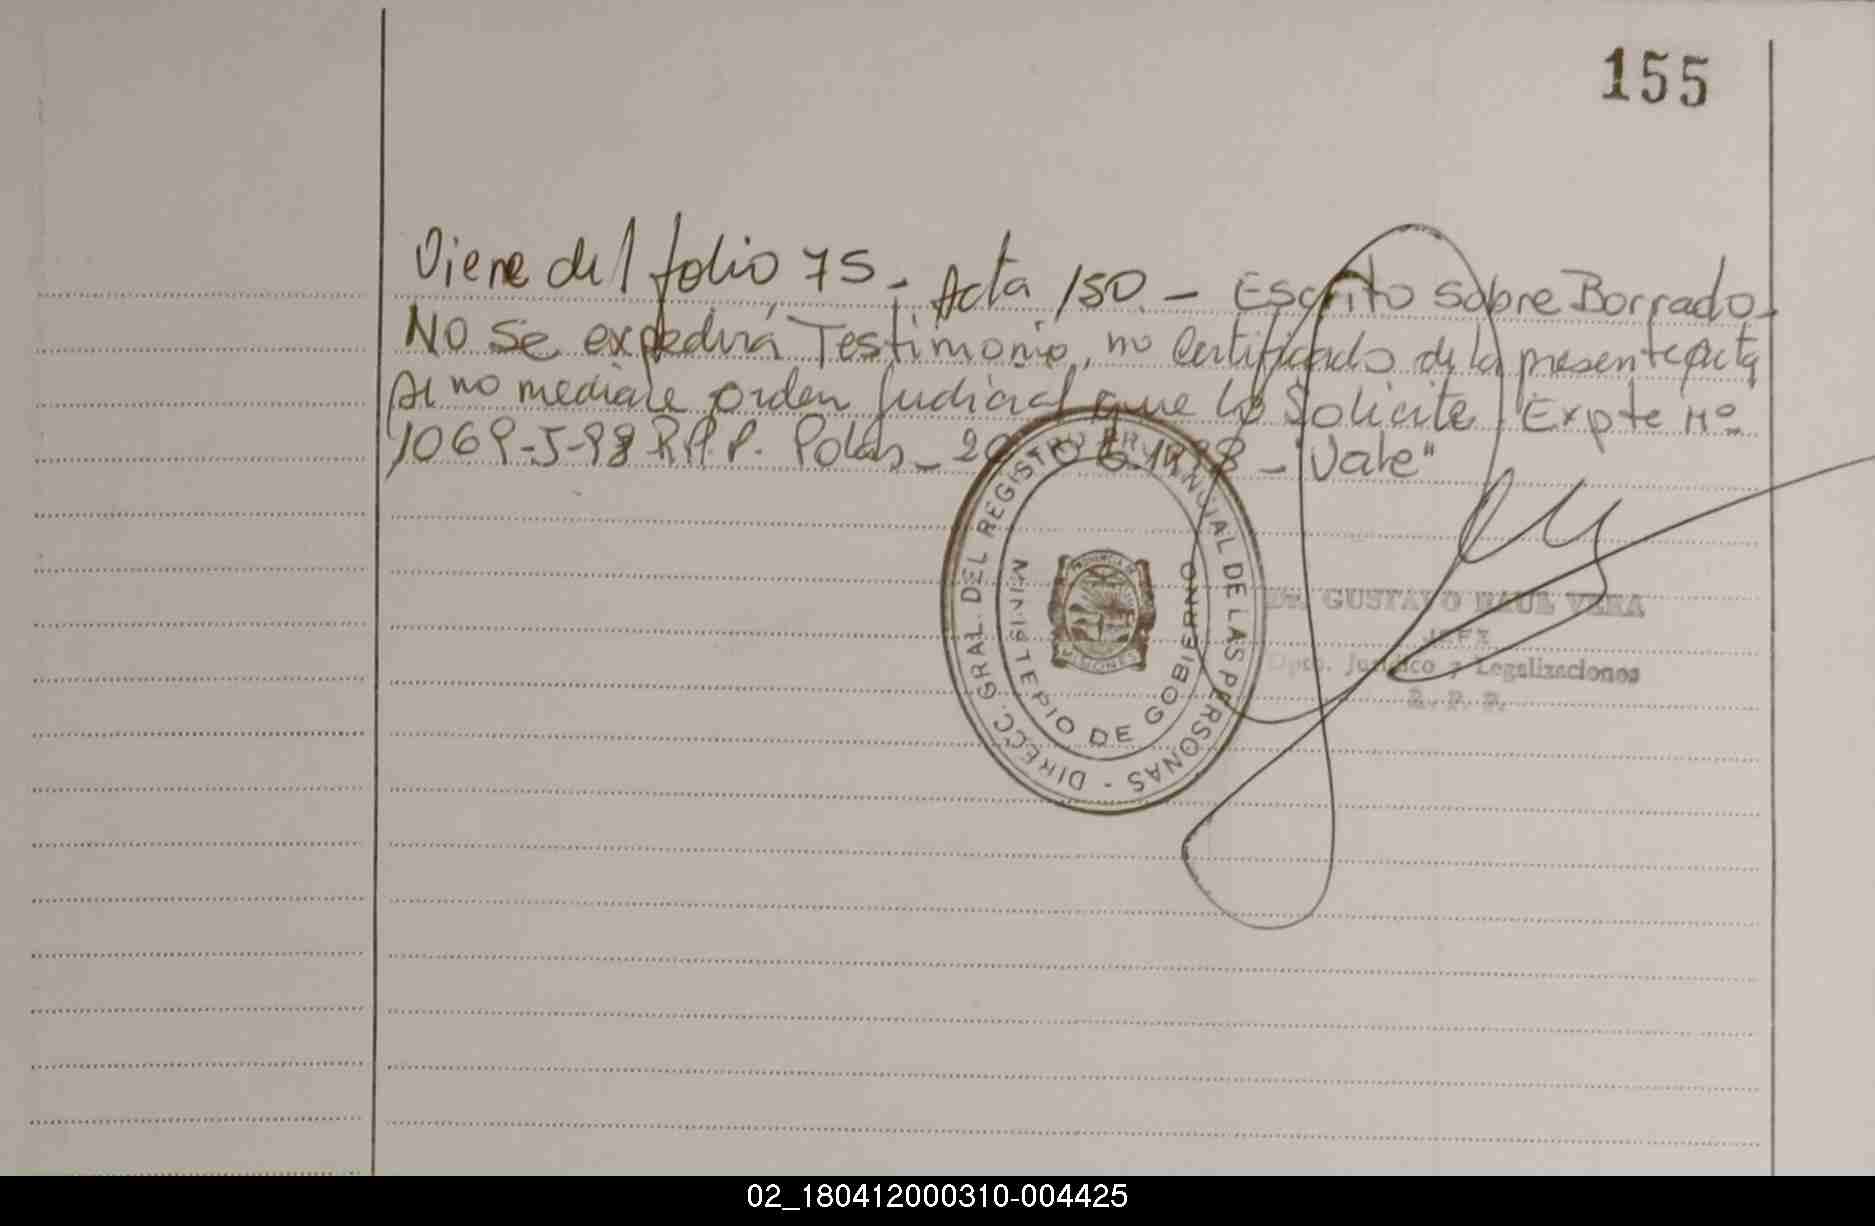 155
Viene del folio 75_ Acta 150. _ Escrito sobre Borrado_
NO Se expedirá Testimonio, no Certificado de la presente acta
si no mediare orden Judicial que lo Solicite. Expte Nº
1069-J-98 R.P.P. 20 6.1998 _ "Vale"
DIRECC. GRAL. DEL REGISTRO PROVINCIAL DE LAS PERSONAS -
MINISTERIO DE GOBIERNO
PROVINCIA DE
MISIONES
Dr. GUSTAVO RAUL VERA
JEFE
Dpto. Jurídico y Legalizaciones
R. P. P.
02_180412000310-004425